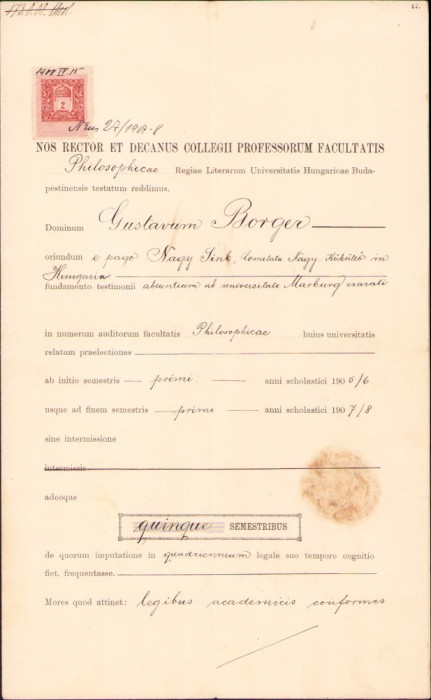 1908 IV 15
2
Nrus 27/1907-8
NOS RECTOR ET DECANUS COLLEGII PROFESSORUM FACULTATIS
Philosophicae Regiae Literarum Universitatis Hungaricae Buda-
pestinensis testatum reddimus,
Dominum Gustavum Borger
oriundum e pago Nagy Sink, Comitatu Nagy-Küküllő in
Hungaria
fundamento testimonii abeuntium ab universitate Marburg exarati
in numerum auditorum facultatis Philosophicae huius universitatis
relatum praelectiones
ab initio semestris primi anni scholastici 1905/6
usque ad finem semestris primi anni scholastici 1907/8
sine intermissione
intermissis
adeoque
quinque SEMESTRIBUS
de quorum imputatione in quadriennium legale suo tempore cognitio
fiet, frequentasse.
Mores quod attinet: legibus academicis conformes